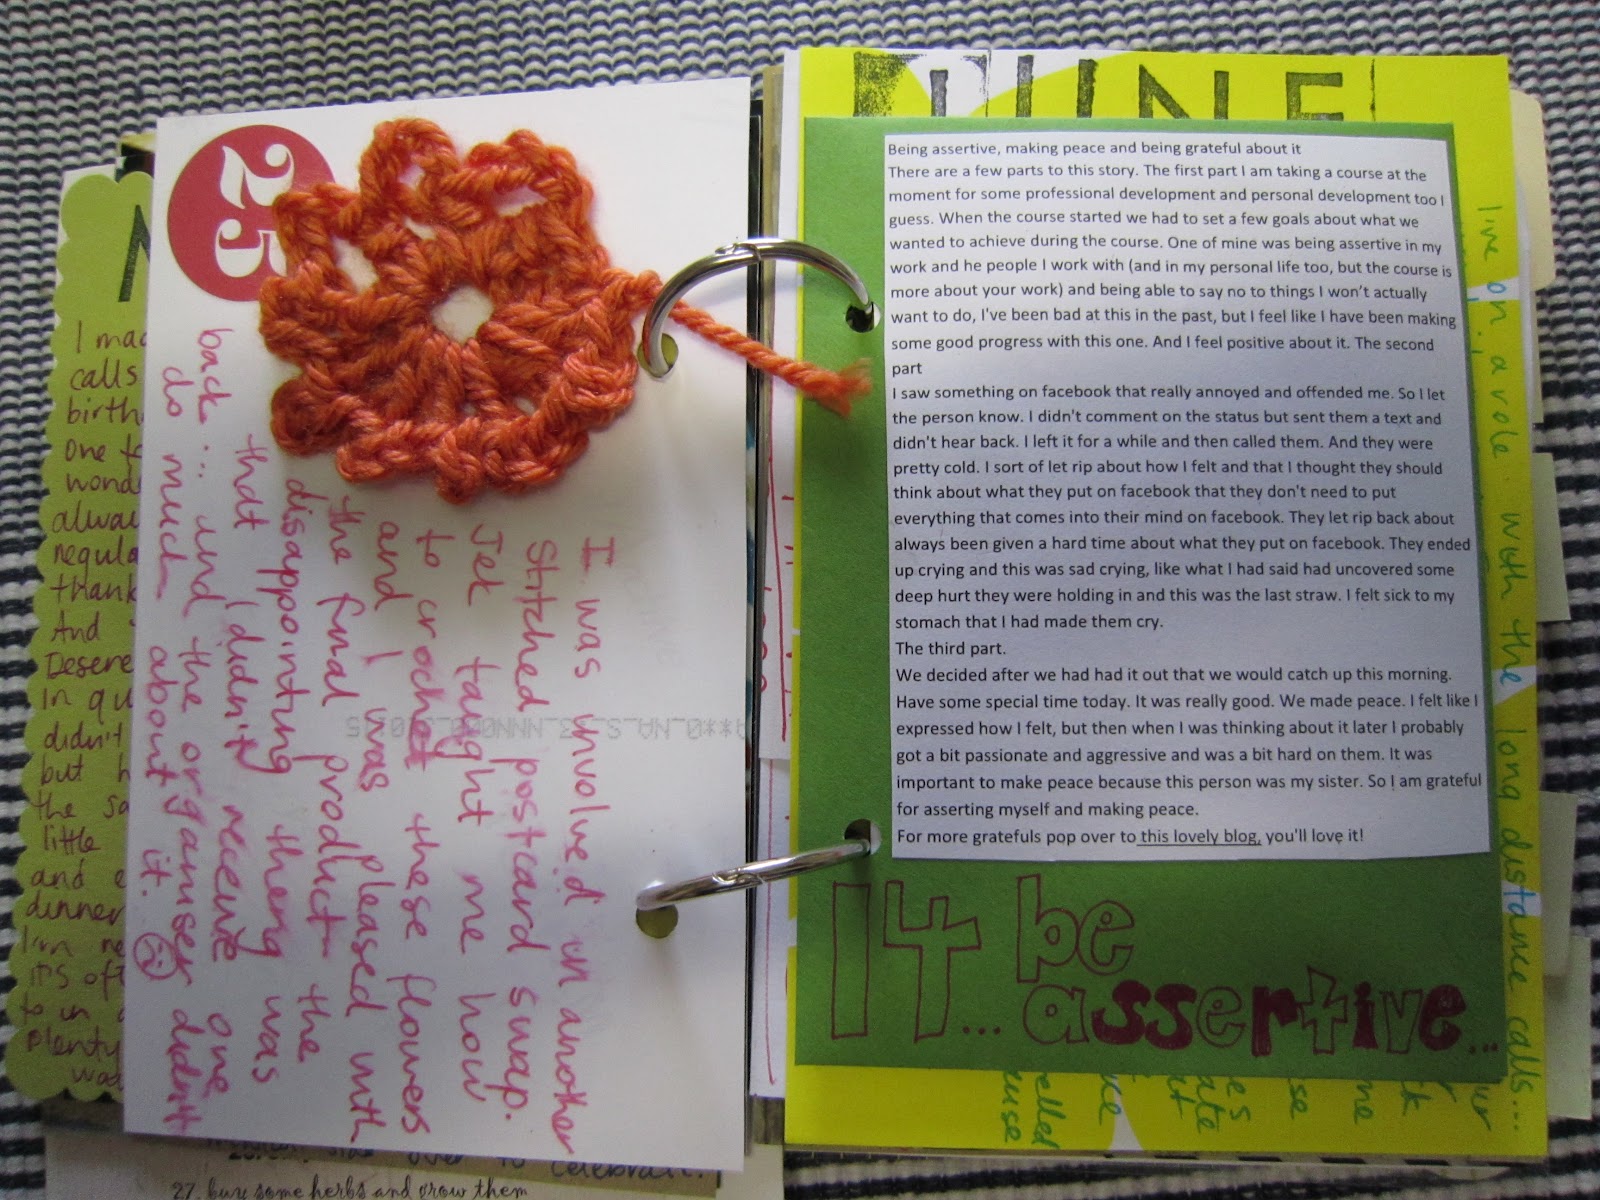 25
I was involved in another
Stitched postcard swap.
Jek taught me how
to crochet these flowers
and I was pleased with
the final product the
disappointing thing was
that I didn't receive one
back... and the organiser didn't
do much about it.
I
calls
birth
one
always
thank
And
Desere
In
didn't
but
the
little
and
dinner
it's
to
plenty
27. buy some herbs and grow them
JUNE
Being assertive, making peace and being grateful about it
There are a few parts to this story. The first part I am taking a course at the
moment for some professional development and personal development too I
guess. When the course started we had to set a few goals about what we
wanted to achieve during the course. One of mine was being assertive in my
work and he people I work with (and in my personal life too, but the course is
more about your work) and being able to say no to things I won't actually
want to do, I've been bad at this in the past, but I feel like I have been making
some good progress with this one. And I feel positive about it. The second
part
I saw something on facebook that really annoyed and offended me. So I let
the person know. I didn't comment on the status but sent them a text and
didn't hear back. I left it for a while and then called them. And they were
pretty cold. I sort of let rip about how I felt and that I thought they should
think about what they put on facebook that they don't need to put
everything that comes into their mind on facebook. They let rip back about
always been given a hard time about what they put on facebook. They ended
up crying and this was sad crying, like what I had said had uncovered some
deep hurt they were holding in and this was the last straw. I felt sick to my
stomach that I had made them cry.
The third part.
We decided after we had had it out that we would catch up this morning.
Have some special time today. It was really good. We made peace. I felt like I
expressed how I felt, but then when I was thinking about it later I probably
got a bit passionate and aggressive and was a bit hard on them. It was
important to make peace because this person was my sister. So I am grateful
for asserting myself and making peace.
For more gratefuls pop over to this lovely blog, you'll love it!
14 be
... assertive...
live on, a role with the long distance calls...